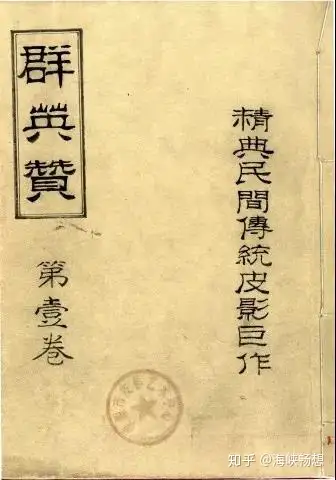 精典民間傳統皮影巨作
群英贊
第壹卷
知乎 @海峡畅想